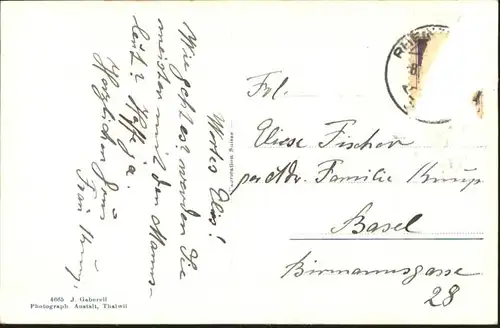 Wertes Elis!
Wie geht es? werden Sie
meister mit den Manns-
leut? Hoffe ja.
Herzlichen Gruss
Frau
Frl.
Eliese Fischer
per Adr. Familie
Basel
Birmannsgasse
28
4665 J. Gaberell
Photograph. Anstalt, Thalwil